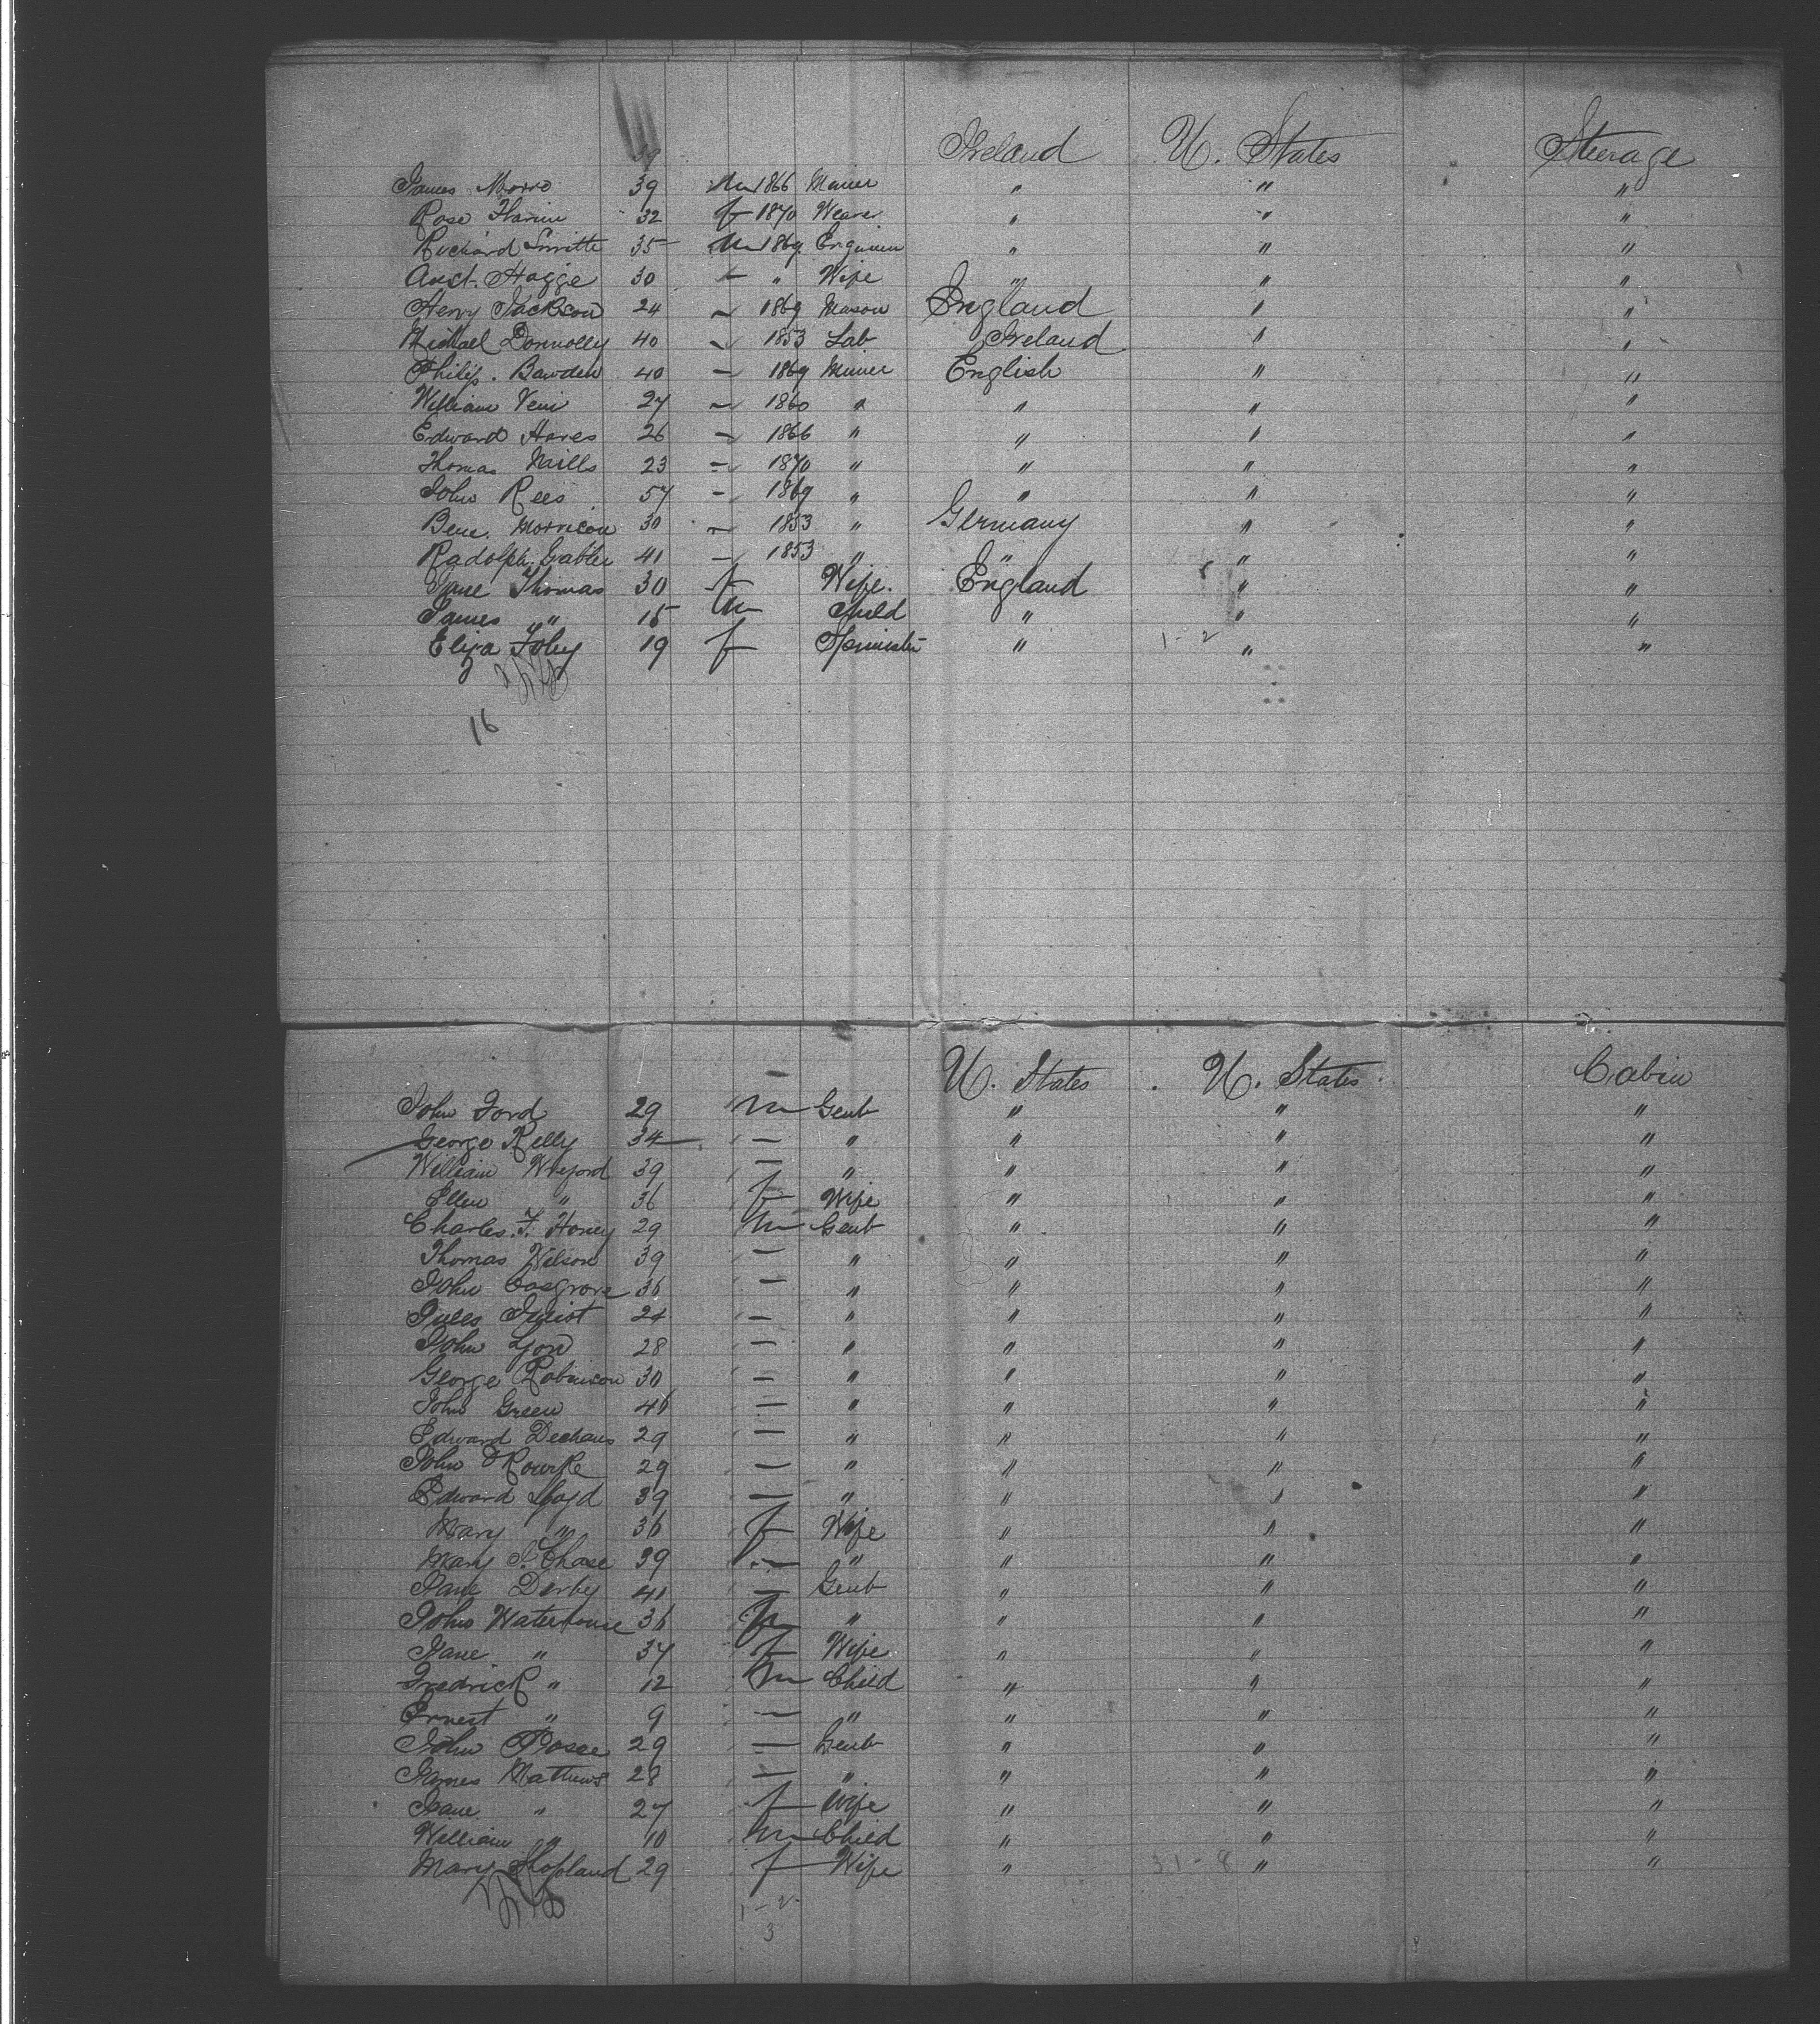 Ireland U. States Steerage
James Morro 39 m 1866 Miner " " "
Rose 32 f 1870 Weaver " " "
Richard Smith 35 m 1869 " " "
Hagge 30 — " Wife " " "
Henry Jackson 24 — 1869 Mason England " "
Michael Donnolly 40 — 1853 Lab Ireland " "
Philip. Bawden 40 — 1869 Miner English " "
William Veni 27 — 1860 " " " "
Edward Hares 26 — 1866 " " " "
Thomas Mills 23 — 1870 " " " "
John Rees 57 — 1869 " " " "
Benj. Morrison 30 — 1853 " Germany " "
Radolph. Grabler 41 — 1853 " " " "
Jane Thomas 30 f Wife. England " "
James " 15 m Child " " "
Eliza Foley 19 f Spinister " 1-2 " "
16
U. States U. States. Cabin
John Ford 29 m Gent " " "
George Kelly 34 — " " " "
William Wreford 39 — " " " "
Ellen " 36 f Wife " " "
Charles. F. Honey 29 m Gent " " "
Thomas Wilson 39 — " " " "
John Cosgrove 36 — " " " "
Jules 24 — " " " "
John Lyon 28 — " " " "
George Robinson 30 — " " " "
John Green 46 — " " " "
Edward Dechaus 29 — " " " "
John O'Rourke 29 — " " " "
Edward Lloyd 39 — " " " "
Mary " 36 f Wife " " "
Mary S. Chase 39 — " " " "
Jane Derby 41 — Gent " " "
John Waterhouse 36 m " " " "
Jane " 37 f Wife " " "
Fredrick " 12 m Child " " "
Ernest " 9 — " " " "
John Posse 29 — Gent " " "
James Mathews 28 — " " " "
Jane " 27 f Wife " " "
William " 10 m Child " " "
Mary Shopland 29 f Wife " 31-8 " "
1-2
3